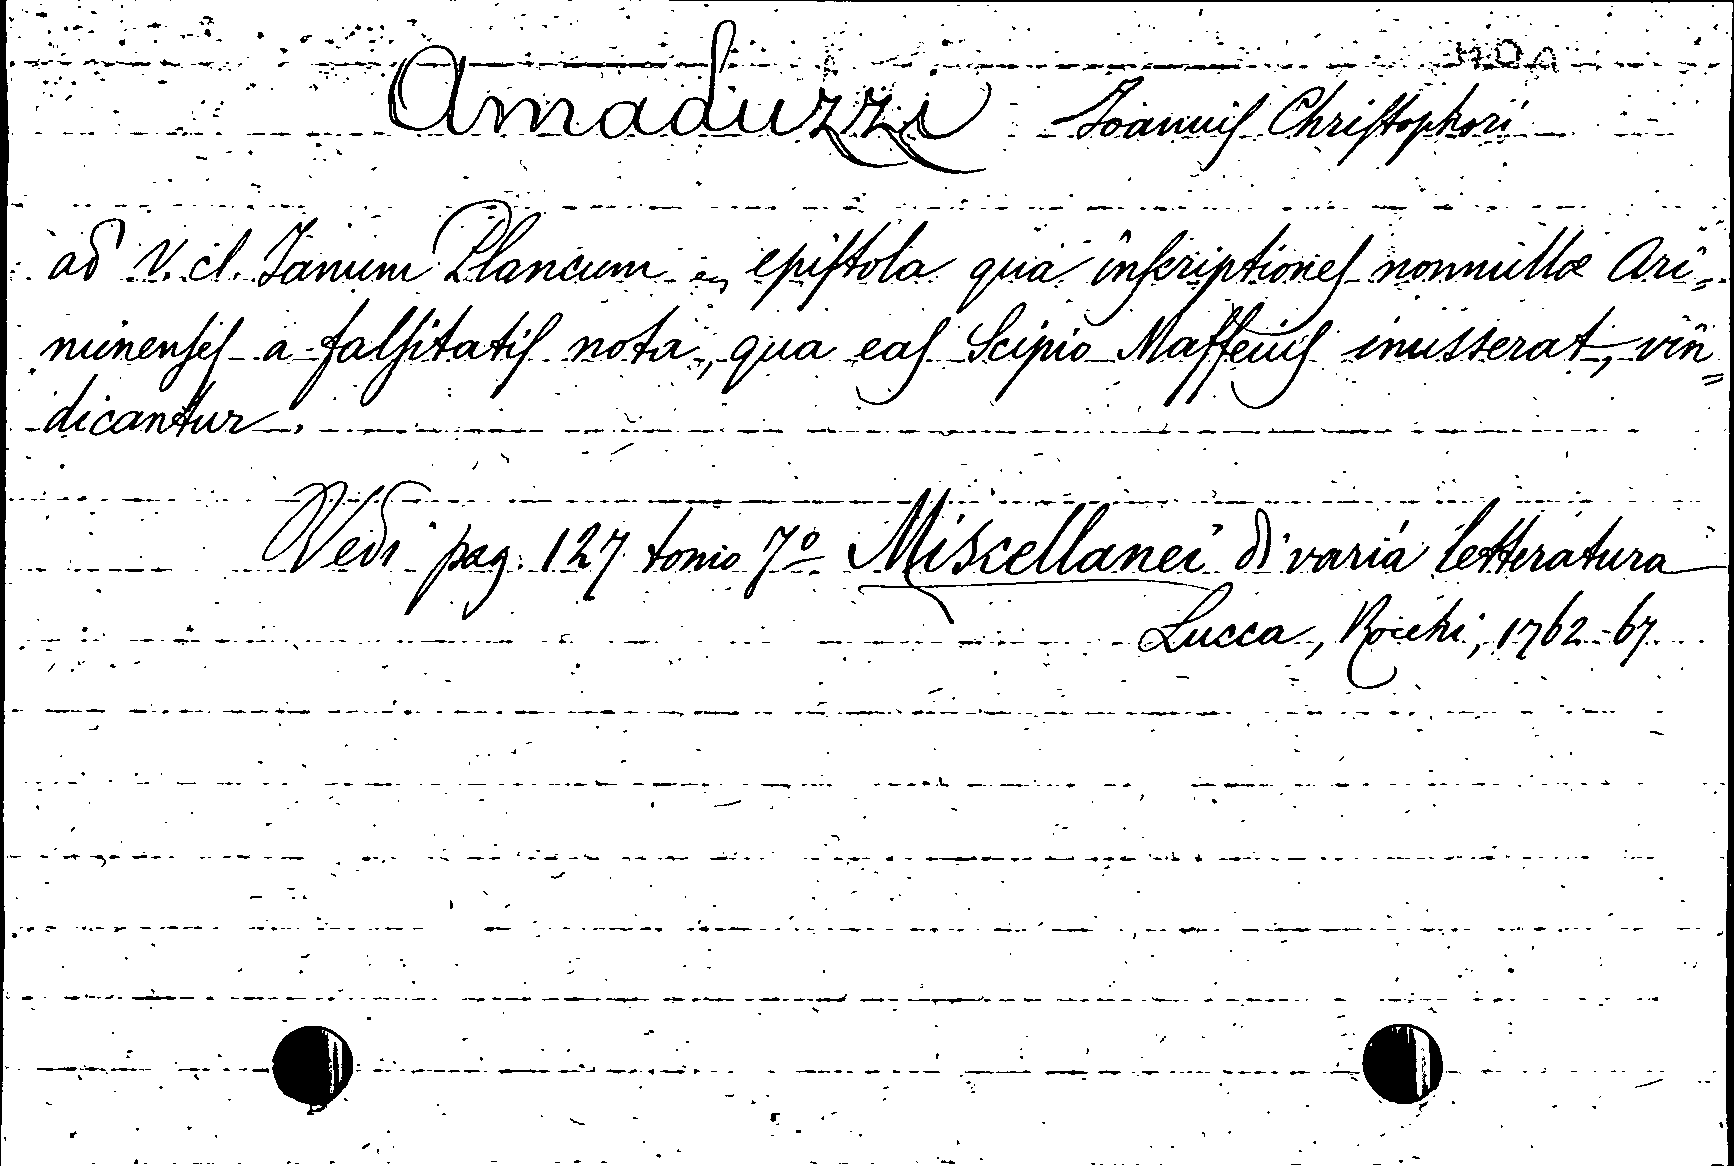 Amaduzzi Joannis Christophori
ad V. cl. Janum Plancum epistola qua inscriptiones nonnullæ Ari=
minenses a falsitatis nota, qua eas Scipio Maffeius inusserat, vin=
dicantur.
Vedi pag. 127 tomo 7º Miscellanei di varia letteratura
Lucca, Rocchi, 1762-67